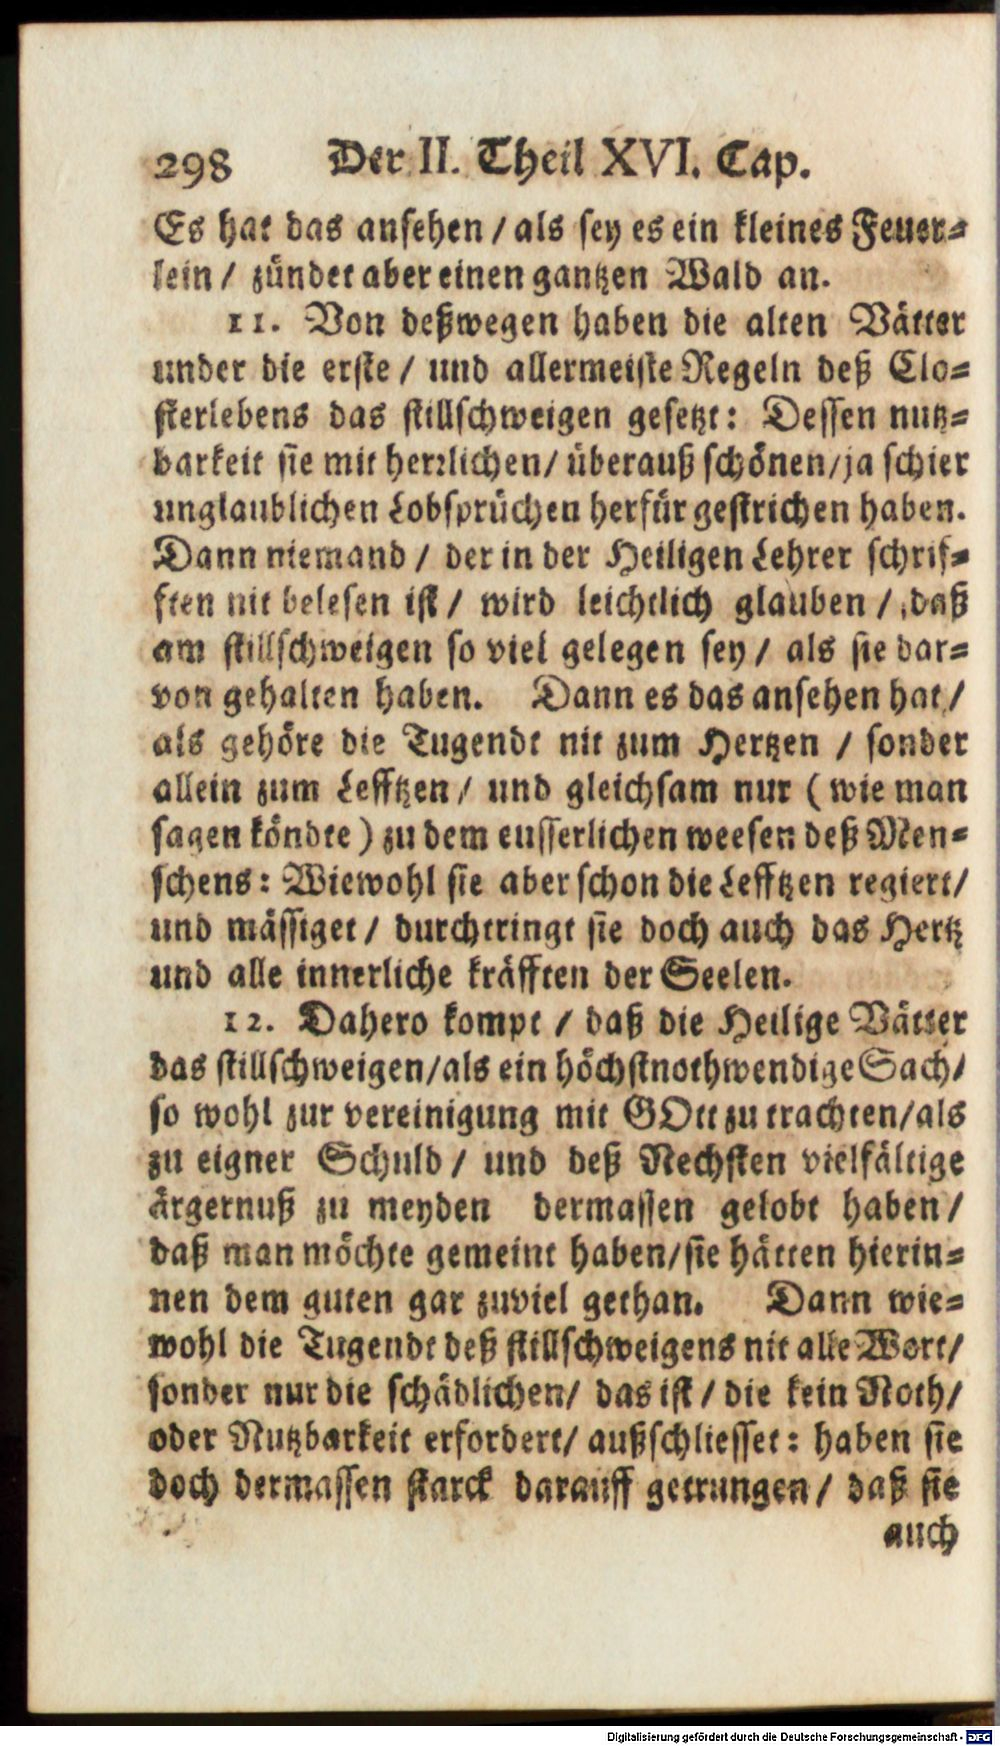 298 Der II. Theil XVI. Cap.
Es hat das ansehen / als sey es ein kleines Feuer-
lein / zündet aber einen gantzen Wald an.
11. Von deßwegen haben die alten Vätter
under die erste / und allermeiste Regeln deß Clo-
sterlebens das stillschweigen gesetzt: Dessen nutz-
barkeit sie mit herrlichen/ überauß schönen/ja schier
unglaublichen Lobsprüchen herfür gestrichen haben.
Dann niemand / der in der Heiligen Lehrer schrif-
ften nit belesen ist / wird leichtlich glauben / daß
am stillschweigen so viel gelegen sey / als sie dar-
von gehalten haben. Dann es das ansehen hat /
als gehöre die Tugendt nit zum Hertzen / sonder
allein zum Lefftzen / und gleichsam nur ( wie man
sagen köndte ) zu dem eusserlichen weesen deß Men-
schens: Wiewohl sie aber schon die Lefftzen regiert/
und mässiget / durchtringt sie doch auch das Hertz
und alle innerliche kräfften der Seelen.
12. Dahero kompt / daß die Heilige Vätter
das stillschweigen/als ein höchstnothwendige Sach/
so wohl zur vereinigung mit GOtt zu trachten/als
zu eigner Schuld / und deß Nechsten vielfältige
ärgernuß zu meyden dermassen gelobt haben /
daß man möchte gemeint haben/sie hätten hierin-
nen dem guten gar zuviel gethan. Dann wie-
wohl die Tugendt deß stillschweigens nit alle Wort/
sonder nur die schädlichen/ das ist / die kein Noth/
oder Nutzbarkeit erfordert/ außschliesset: haben sie
doch dermassen starck darauff getrungen / daß sie
auch
Digitalisierung gefördert durch die Deutsche Forschungsgemeinschaft - DFG